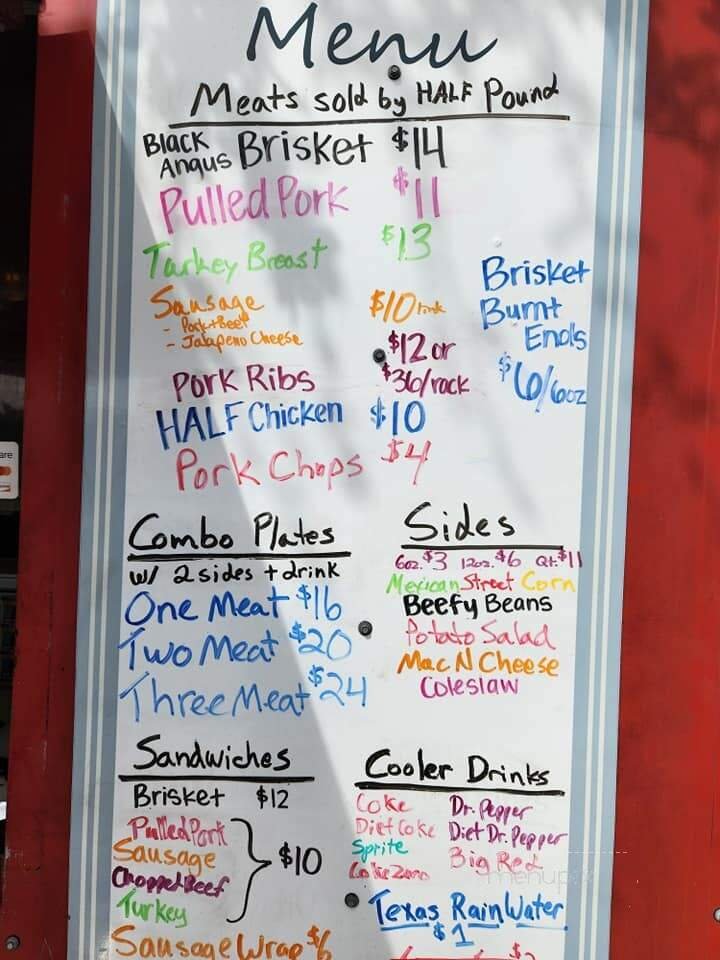 Menu
Meats sold by HALF Pound
Black Angus Brisket $14
Pulled Pork $11
Turkey Breast $13
Sausage $10 link
- Pork+Beef
- Jalapeno Cheese
Pork Ribs $12 or $36/rack
HALF Chicken $10
Pork Chops $4
Brisket
Burnt
Ends
$6/6oz
Combo Plates
w/ 2 sides + drink
One Meat $16
Two Meat $20
Three Meat $24
Sides
6oz. $3 12oz. $6 Qt. $11
Mexican Street Corn
Beefy Beans
Potato Salad
Mac N Cheese
Coleslaw
Sandwiches
Brisket $12
Pulled Pork
Sausage
Chopped Beef
Turkey
$10
Sausage Wrap $6
Cooler Drinks
Coke
Diet Coke
Sprite
Coke Zero
Dr. Pepper
Diet Dr. Pepper
Big Red
Texas Rain Water
$1
$2